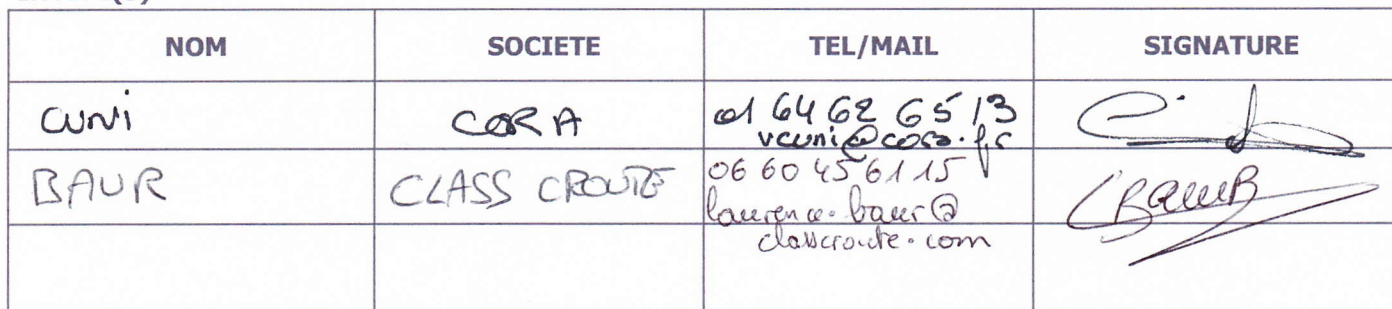 NOM SOCIETE TEL/MAIL SIGNATURE
CUNI CORA 01 64 62 65 13
vcuni@cora.fr
BAUR CLASS CROUTE 06 60 45 61 15
laurence.baur@
classcroute.com